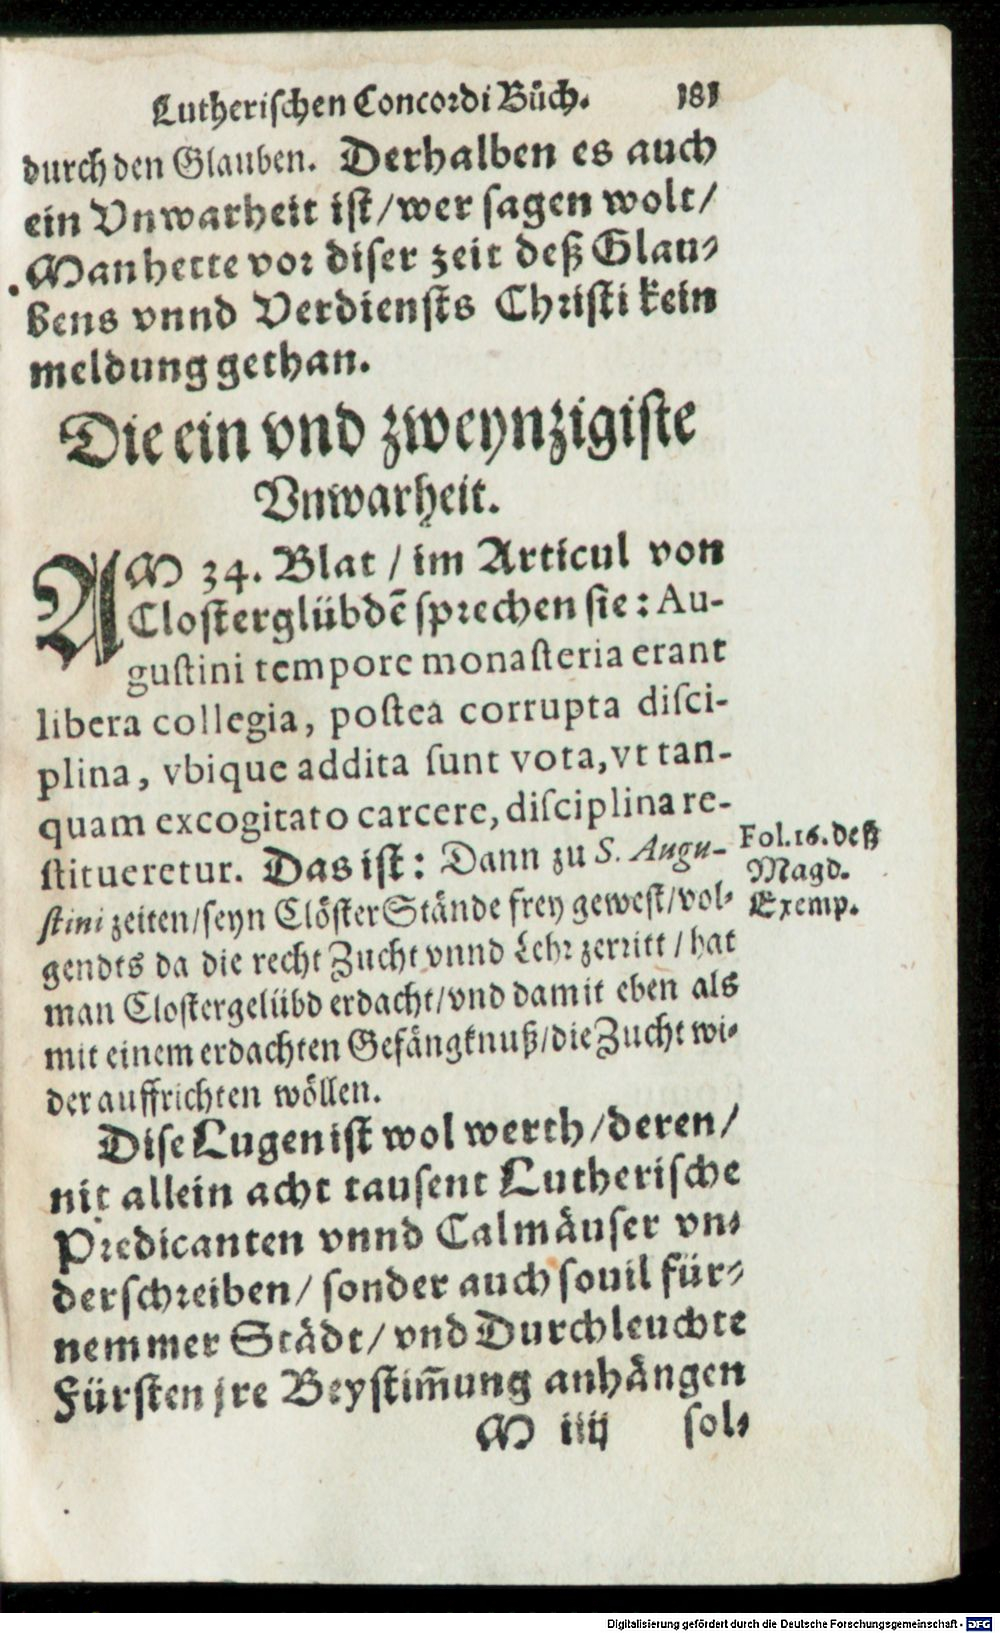 Lutherischen Concordi Bůch. 181
durch den Glauben. Derhalben es auch
ein Vnwarheit ist/wer sagen wolt/
Man hette vor diser zeit deß Glau-
bens vnnd Verdiensts Christi kein
meldung gethan.
Die ein vnd zweynzigiste
Vnwarheit.
AM 34. Blat / im Articul von
Closterglübdē sprechen sie: Au-
gustini tempore monasteria erant
libera collegia, postea corrupta disci-
plina, vbique addita sunt vota, vt tan-
quam excogitato carcere, disciplina re-
stitueretur. Das ist: Dann zu S. Augu-
stini zeiten/seyn Clöster Stände frey gewest/vol-
gendts da die recht Zucht vnnd Lehr zerritt / hat
man Clostergelübd erdacht/vnd damit eben als
mit einem erdachten Gefängknuß/die Zucht wi-
der auffrichten wöllen.
Fol.16. deß
Magd.
Exemp.
Dise Lugen ist wol werth/deren/
nit allein acht tausent Lutherische
Predicanten vnnd Calmäuser vn-
derschreiben/ sonder auch souil für-
nemmer Städt/ vnd Durchleuchte
Fürsten jre Beystim̄ung anhängen
M iiij sol-
Digitalisierung gefördert durch die Deutsche Forschungsgemeinschaft - DFG